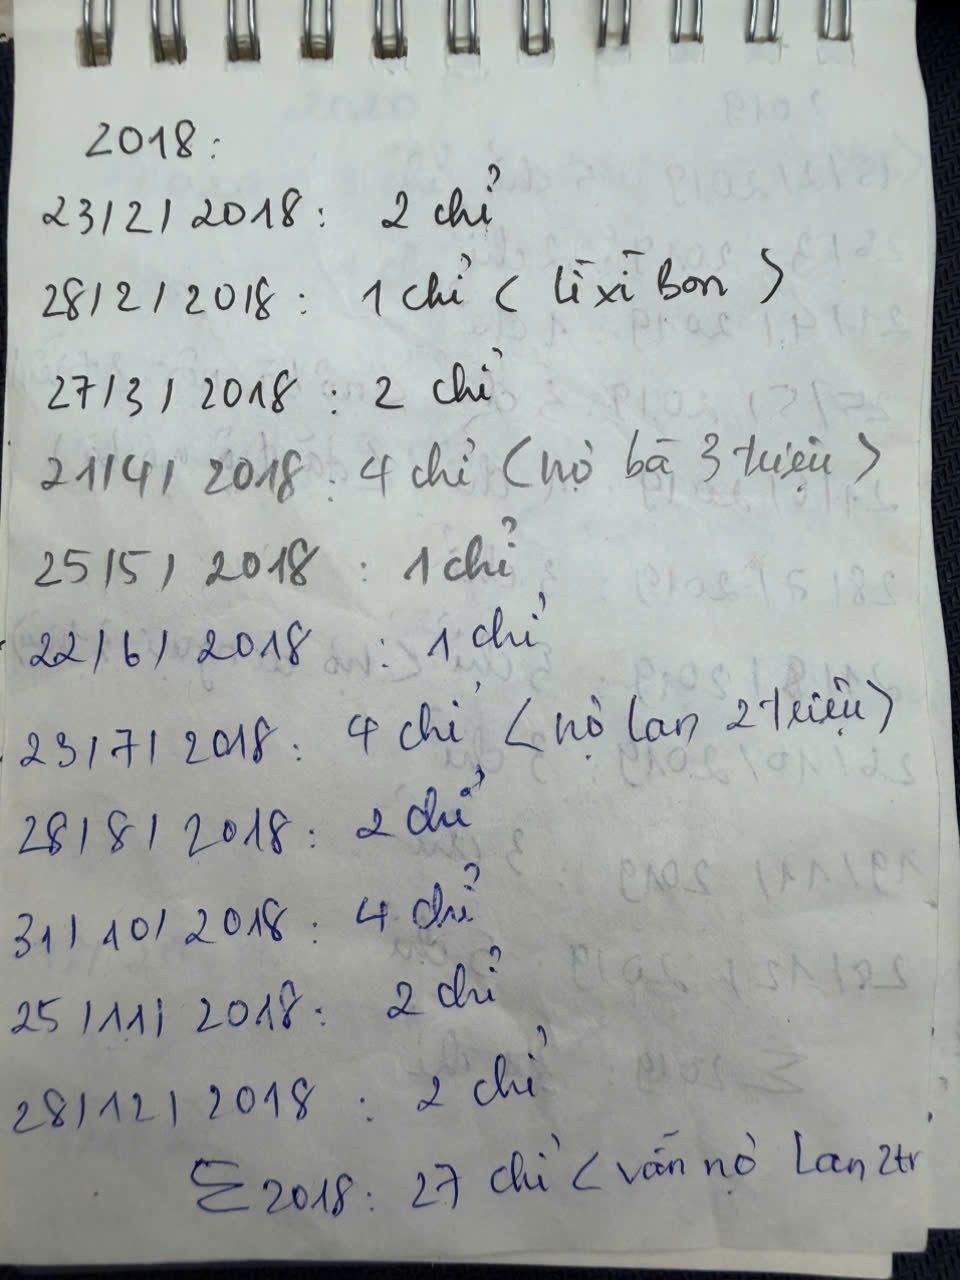 2018:
23/2/2018: 2 chỉ
28/2/2018: 1 chỉ (lì xì Bon)
27/3/2018: 2 chỉ
21/4/2018: 4 chỉ (nợ bà 3 triệu)
25/5/2018: 1 chỉ
22/6/2018: 1 chỉ
23/7/2018: 4 chỉ (nợ Lan 2 triệu)
28/8/2018: 2 chỉ
31/10/2018: 4 chỉ
25/11/2018: 2 chỉ
28/12/2018: 2 chỉ
Σ 2018: 27 chỉ (vẫn nợ Lan 2tr